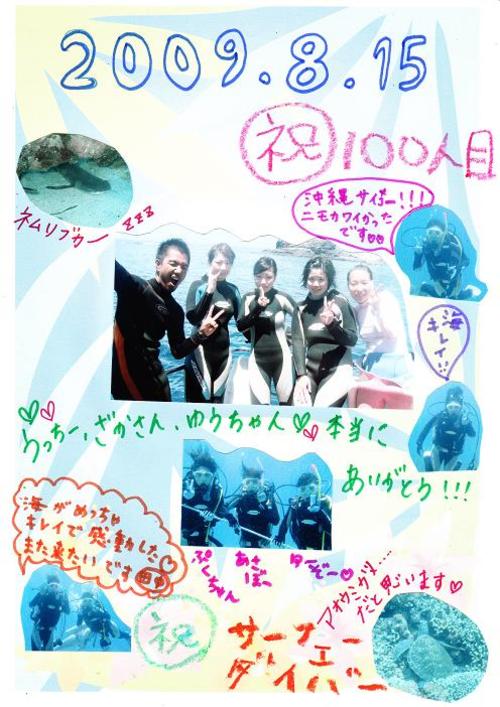 2009.8.15
祝 100人目
沖縄サイコー!!!
ニモカワイかった
です♡♡
ネムリブカー zzz
海
キレイ!!
うっちー、ざかさん、ゆうちゃん♡♡本当に
ありがとう!!!
海がめっちゃ
キレイで感動した♡
また来たいです
ぷくちゃん
あさぼー
アオウミガメ.....
だと思います♡
祝